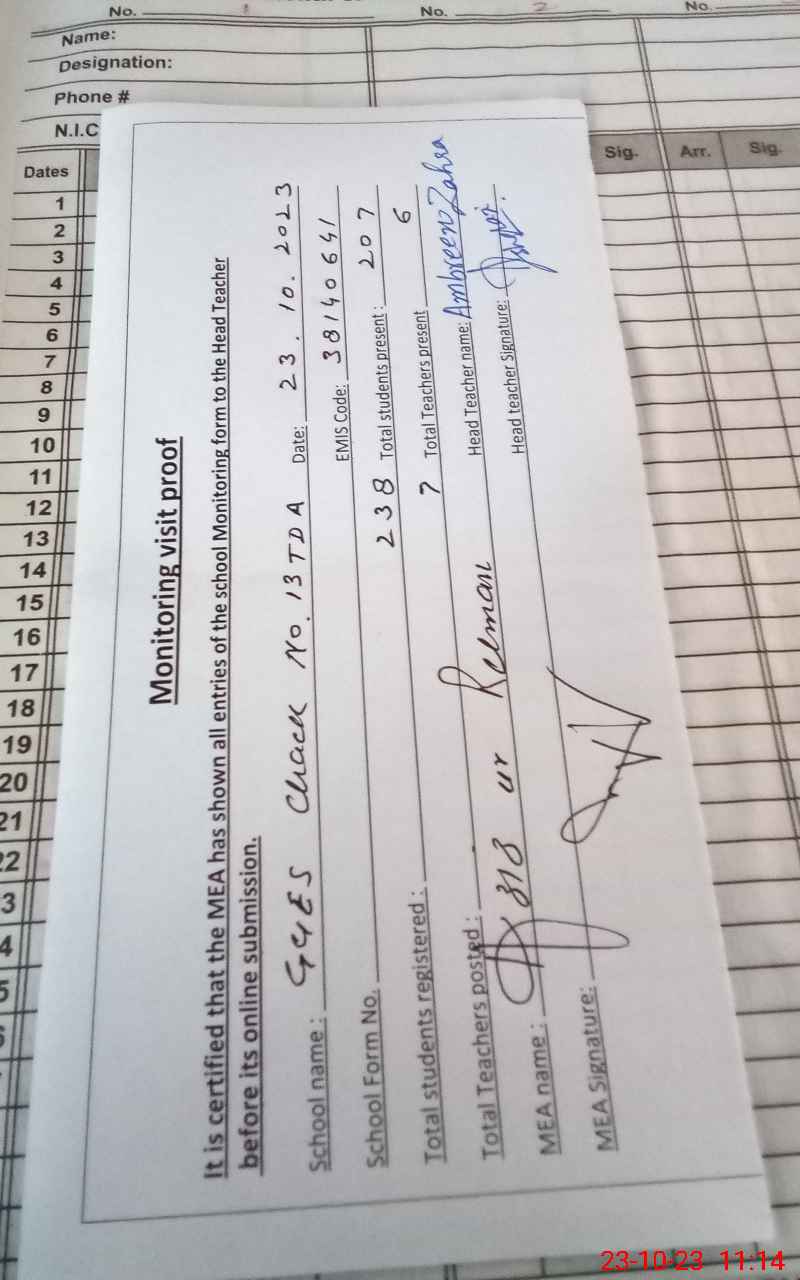 No. 1 No. 2 No.
Name:
Designation:
Phone #
N.I.C
Dates Sig. Arr. Sig.
1
2
3
4
5
6
7
8
9
10
11
12
13
14
15
16
17
18
19
20
21
22
3
4
5
Monitoring visit proof
It is certified that the MEA has shown all entries of the school Monitoring form to the Head Teacher
before its online submission.
School name : GGES Chack No. 13 TDA Date: 23.10.2023
School Form No. EMIS Code: 38140641
Total students registered : 238 Total students present : 207
Total Teachers posted : 7 Total Teachers present 6
MEA name : ur Rehman Head Teacher name: Ambreen Zahra
MEA Signature: Head teacher Signature:
23-10-23 11:14